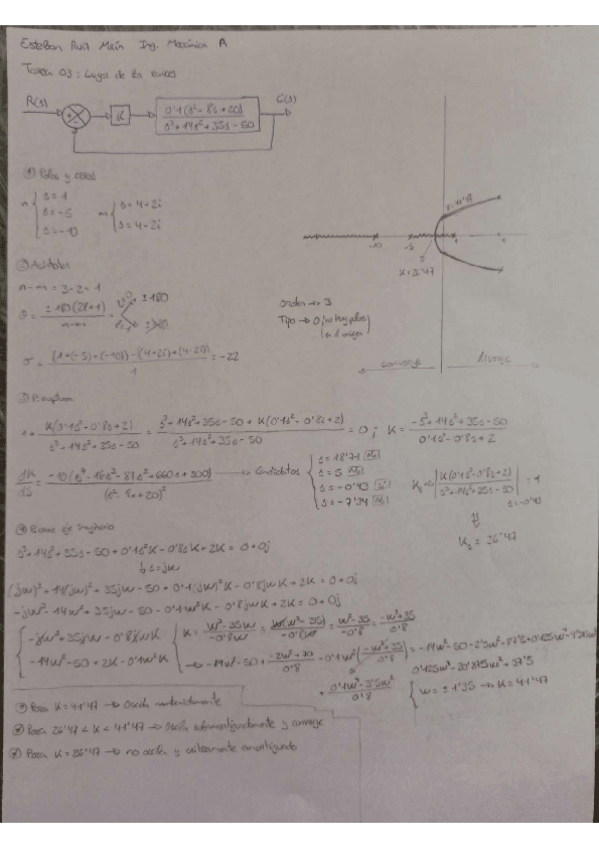 Esteban Ruiz Ing. Mecánica A
Tarea 03: Lugar de las raíces
R(s) C(s)
K
0'1(s²-8s+20)
s³+14s²+35s-50
① Polos y ceros
n { s=1
s=-5
s=-10
m { s=4+2i
s=4-2i
② Asíntotas
n-m = 3-2 = 1
θ = ±180(2q+1) / n-m = ±180
σ = (1+(-5)+(-10))-(4+2i)+(4-2i) / 1 = -22
Orden → 3
Tipo → 0 (no hay polos en el origen)
K=41'47
-10 -5 1
K=26'47
converge diverge
③ P. ruptura
1+ K(0'1s²-0'8s+2) / s³+14s²+35s-50 = s³+14s²+35s-50 + K(0'1s²-0'8s+2) / s³+14s²+35s-50 = 0 ; K = -s³+14s²+35s-50 / 0'1s²-0'8s+2
dK/ds = -10(s⁴-16s³-87s²+660s+300) / (s²-8s+20)² → Candidatos { s=18'71 No
s=5 No
s=-0'40 Sí
s=-7'34 No
K₀ → |K(0'1s²-0'8s+2) / s³+14s²+35s-50| = 1
s=-0'40
K₀ = 26'47
④ P. corte eje imaginario
s³+14s²+35s-50+0'1s²K-0'8sK+2K = 0+0j
↳ s=jw
(jw)³+14(jw)²+35jw-50+0'1(jw)²K-0'8jwK+2K = 0+0j
-jw³-14w²+35jw-50-0'1w²K-0'8jwK+2K = 0+0j
{ -jw³+35jw-0'8jwK
-14w²-50+2K-0'1w²K
K = w³-35w / -0'8w = w(w²-35) / -0'8w = w²-35 / -0'8 = -w²+35 / 0'8
→ -14w²-50+ -2w²+70 / 0'8 -0'1w²(-w²+35 / 0'8) = -14w²-50-2'5w²+87'5+0'125w⁴-4'375w²
+ 0'1w⁴-3'5w² / 0'8
0'125w⁴-20'875w²+37'5
w = ±1'35 → K=41'47
* Para K=41'47 → Oscila mantenidamente
* Para 26'47 < K < 41'47 → Oscila subamortiguadamente y converge
* Para K=26'47 → no oscila y críticamente amortiguado